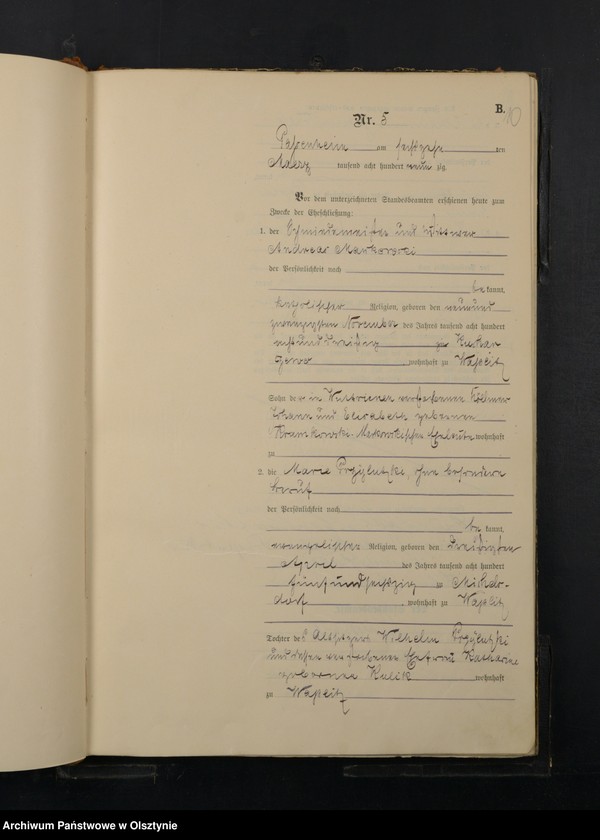 B.
10
Nr. 5
Passenheim am sechszehn ten
Maerz tausend acht hundert neun zig.
Vor dem unterzeichneten Standesbeamten erschienen heute zum
Zwecke der Eheschließung:
1. der Schmiedemeister und Wittwer
Andreas Markowski
der Persönlichkeit nach
be kannt,
katholischer Religion, geboren den neunund
zwanzigsten November des Jahres tausend acht hundert
acht und dreißig zu
, wohnhaft zu Waplitz
Sohn der in verstorbenen Köllmer
Johann und Elisabeth geborenen
Eheleute wohnhaft
zu
2. die Marie Przygutzki, ohne besonderen
Beruf
der Persönlichkeit nach
be kannt,
evangelischer Religion, geboren den dreißigsten
April des Jahres tausend acht hundert
fünf und sechszig zu Michels-
dorf , wohnhaft zu Waplitz
Tochter des Altsitzers Wilhelm
und dessen verstorbenen Ehefrau Katharine
geborene Kulik wohnhaft
zu Waplitz
Archiwum Państwowe w Olsztynie